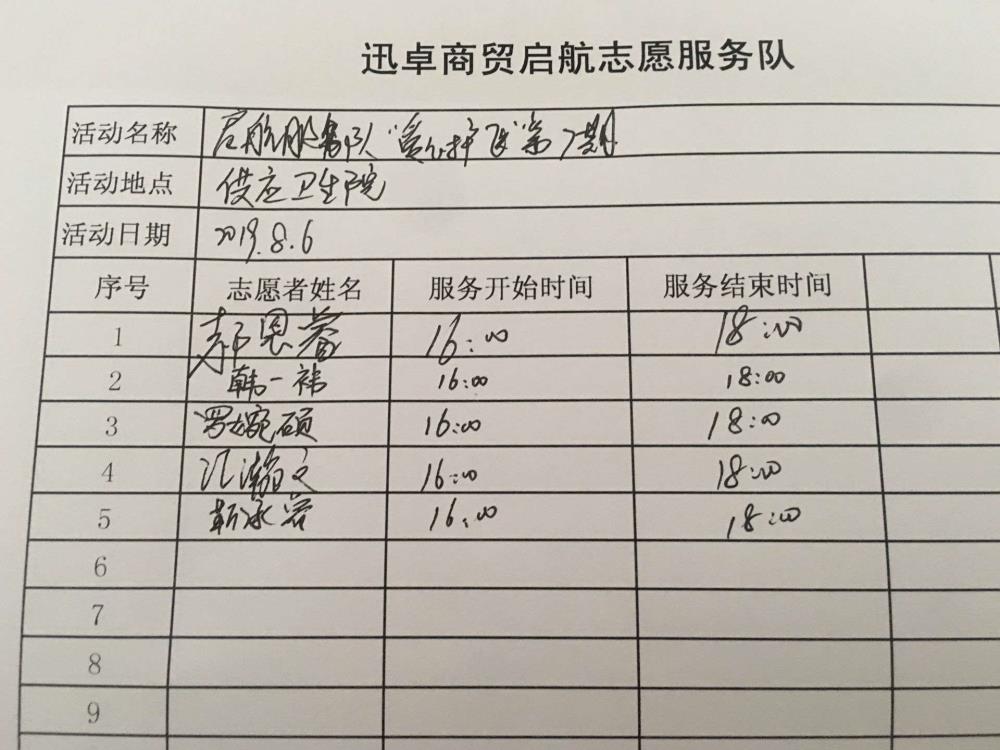 迅卓商贸启航志愿服务队
活动名称 启航服务队"爱心护飞"第7期
活动地点 供应卫生院
活动日期 2019.8.6
序号 志愿者姓名 服务开始时间 服务结束时间
1 郝恩蓉 16:00 18:00
2 韩一祎 16:00 18:00
3 罗婉硕 16:00 18:00
4 汪瀚文 16:00 18:00
5 靳承容 16:00 18:00
6
7
8
9